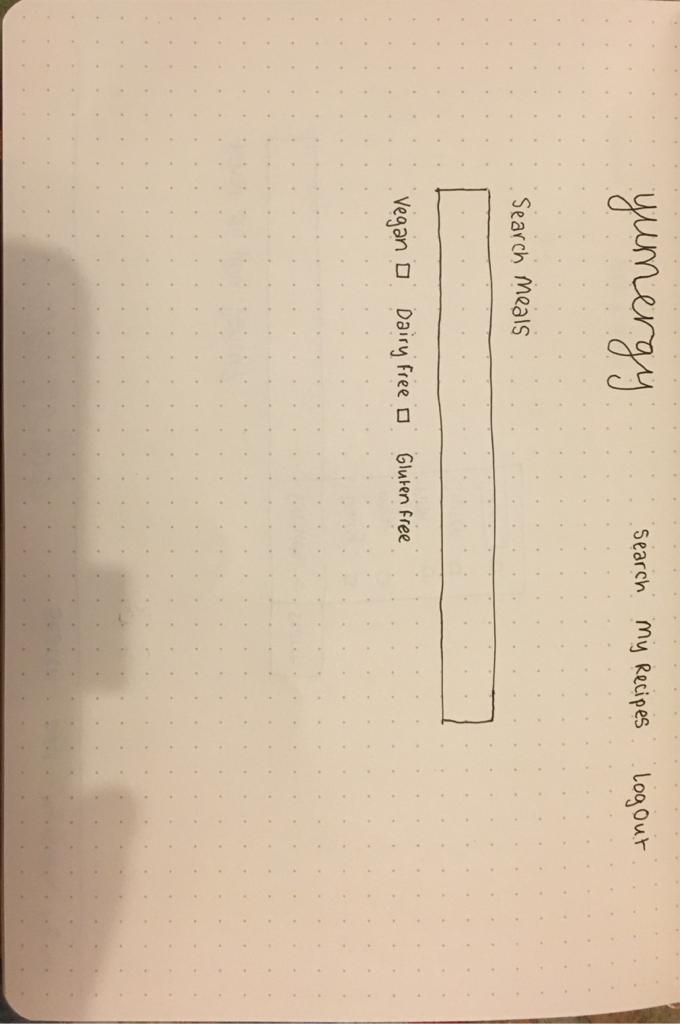 yumergy search My Recipes logout
Search Meals
Vegan Dairy free Gluten free